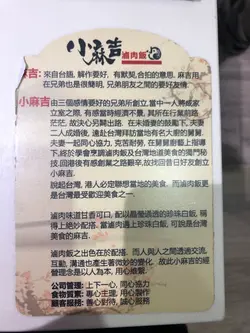 小麻吉
滷肉飯
麻吉: 來自台語, 解作要好, 有默契, 合拍的意思. 麻吉用
在兄弟也是很簡明, 兄弟朋友之間的要好友情.
小麻吉: 由三個感情要好的兄弟所創立, 當中一人將成家
立室之際, 有感當時經濟不景, 其所在行業前路
茫茫, 故決心另闢出路. 在未婚妻的鼓勵下, 夫妻
二人成婚後, 遠赴台灣拜訪當地有名大廚的舅舅.
夫妻一起同心協力, 克苦耐勞, 在舅舅創藝上指導
下, 終於學會烹調滷肉飯及台灣地道美食的獨門秘
技, 回港後有感創業之路艱辛, 故找回昔日好友創立
小麻吉.
說起台灣, 港人必定聯想當地的美食. 而滷肉飯更
是台灣最受歡迎美食之一.
滷肉味道甘香可口, 配以最優過過的珍珠白飯, 稱
得上絕妙配搭. 當滷肉遇上珍珠白飯, 可說是台灣
美食的麻吉.
滷肉飯之出色在於配搭. 而人與人之間透過交流,
互動, 溝通也產生著微妙的變化. 故此小麻吉的經
營理念是以人為本, 用心烹營.
公司管理: 上下一心, 同心協力
食物質素: 專心主理, 用心製作
顧客服務: 善心對待, 誠心服務